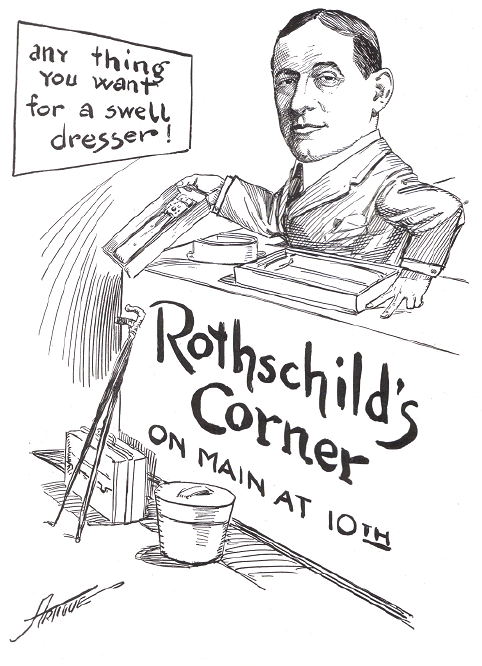 any thing
you want
for a swell
dresser!
Rothschild's
Corner
ON MAIN AT 10TH
Artigue